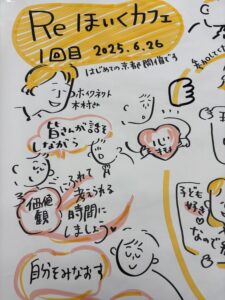 Reほいくカフェ
1回目 2025.6.26
はじめての京都開催です
ホイクネット
木村さん
皆さんが話を
しながら
心
価値観
にふれて
考えられる
時間に
しましょう
自分をみなおす
子ども
好き
なので